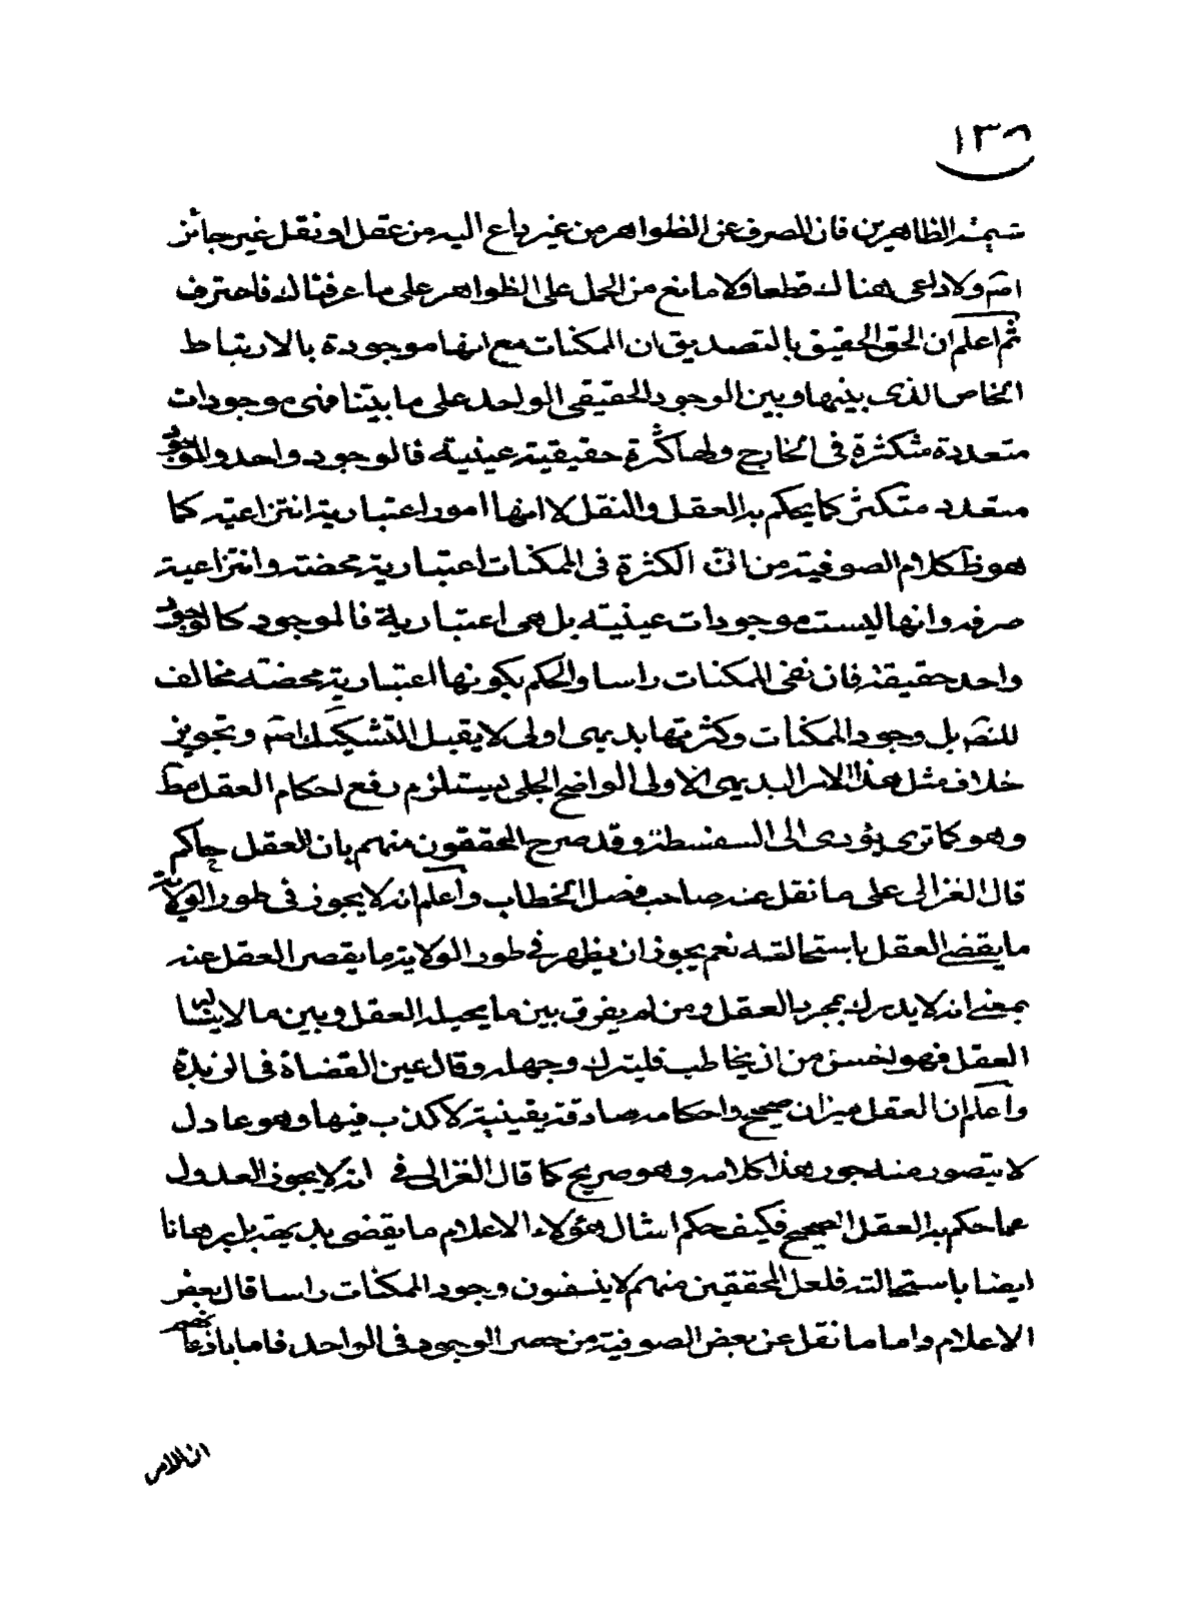 ١٣٨
شيمة الظاهرين فان الصرف عن الظواهر من غير داع اليه من عقل او نقل غير جائز
اصم ولا داعى هنالك قطعا ولا مانع من الحمل على الظواهر على ما عرفنالك فاحترف
ثم اعلم ان الحق الحقيق بالتصديق ان الممكنات مع انها موجودة بالارتباط
الخاص الذى بينها وبين الوجود الحقيقى الواحد على ما بيّنا فهى موجودات
متعددة متكثرة فى الخارج ولها كثرة حقيقية عينية فالوجود واحد والموجود
متعدد متكثر كما يحكم به العقل والنقل لا انها امور اعتبارية انتزاعية كما
هو ظ كلام الصوفية من ان الكثرة فى الممكنات اعتبارية محضة وانتزاعية
صرفه وانها ليست موجودات عينية بل هى اعتبارية فالموجود كالوجود
واحد حقيقة فان نفى الممكنات راسا والحكم بكونها اعتبارية محضة مخالف
للنص بل وجود الممكنات وكثرتها بديهى اولى لا يقبل التشكيك اصم وتجويز
خلاف مثل هذا الامر البديهى الاولى الواضح الجلى يستلزم رفع احكام العقل مط
وهو كما ترى يؤدى الى السفسطة وقد صرح المحققون منهم بان العقل حاكم
قال الغزالى على ما نقل عنه صاحب فصل الخطاب واعلم انه لا يجوز فى طور الولاية
ما يقضى العقل باستحالته نعم يجوز ان يظهر فى طور الولاية ما يقصر العقل عنه
بمعنى انه لا يدرك بمجرد العقل ومن لم يفرق بين ما يحيله العقل وبين ما لا يناله
العقل فهو اخس من ان يخاطب فليترك وجهله وقال عين القضاة فى الزبدة
واعلم ان العقل ميزان صحيح واحكامه صادقة يقينية لا كذب فيها وهو عادل
لا يتصور منه جور هذا كلامه وهو صريح كما قال الغزالى فى انه لا يجوز العدول
عما حكم به العقل الصحيح فكيف حكم امثال هؤلاء الاعلام ما يقضى بل يهتبل برهانا
ايضا باستحالته فلعل المحققين منهم لا ينفون وجود الممكنات راسا قال بعض
الاعلام واما ما نقل عن بعض الصوفية من حصر الوجود فى الواحد فاما بادعائهم
ان الامر